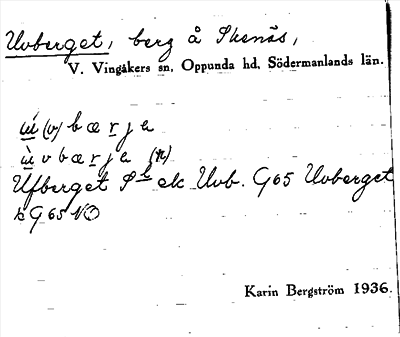 Uvberget, berg å Skenäs,
V. Vingåkers sn, Oppunda hd, Södermanlands län.
ú (v) b æ r j e
ù v b æ r j e (n)
Ufberget Sk ek Uvb. G65 Uvberget
k G 65 NO
Karin Bergström 1936.